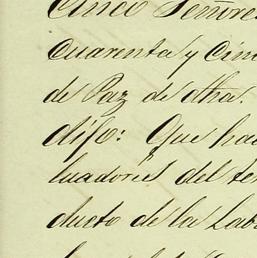 Cinco Señores
Cuarenta y Cin
de Paz de dha.
dijo: Que ha
luadores del te
ducto de la Lab